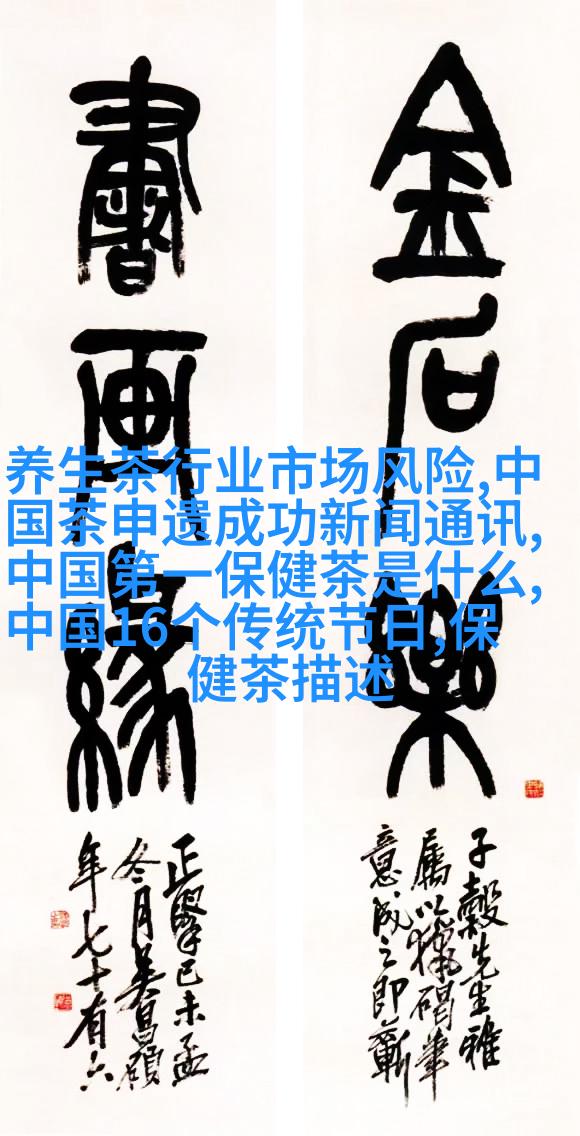 养生茶行业市场风险,中
国茶申遗成功新闻通讯,
中国第一保健茶是什么,
中国16个传统节日,保
健茶描述
金石樂
子穀先生雅
屬以獵碣筆
意成之即蘄
書画緣
正己未孟
冬月吳昌碩
年七十有六